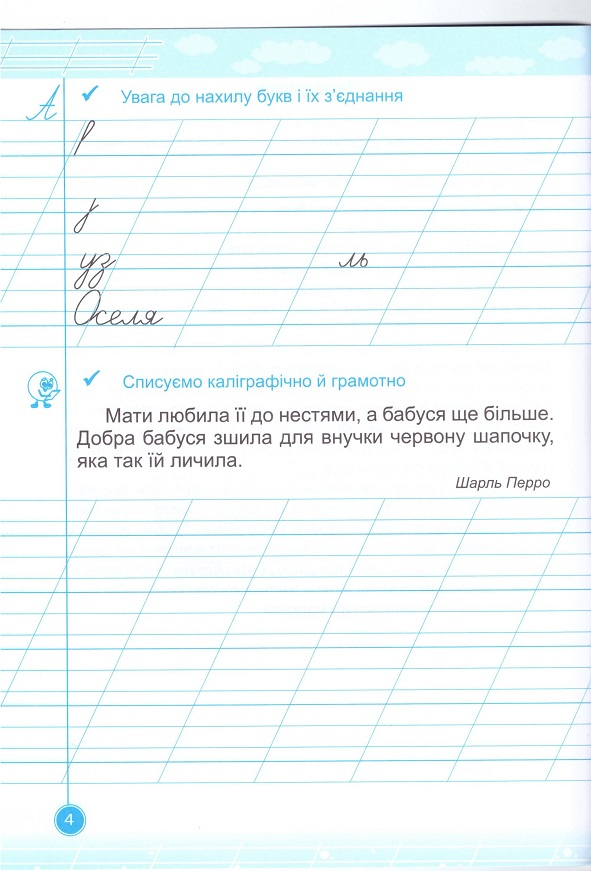 А
Увага до нахилу букв і їх з'єднання
р
у
уз ль
Оселя
Списуємо каліграфічно й грамотно
Мати любила її до нестями, а бабуся ще більше.
Добра бабуся зшила для внучки червону шапочку,
яка так їй личила.
Шарль Перро
4